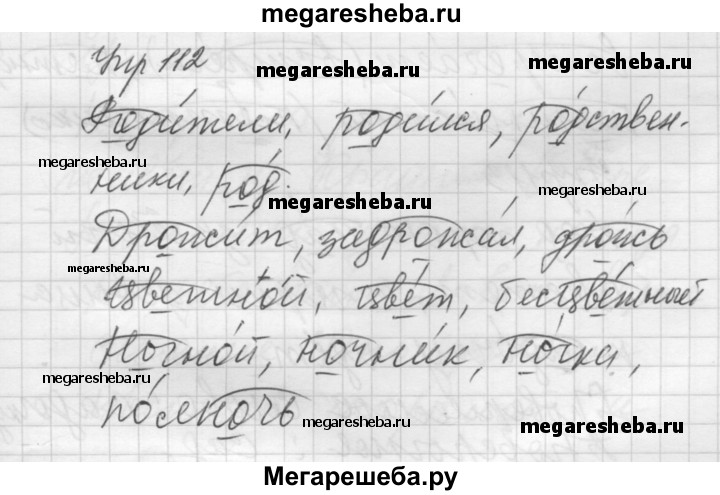 megaresheba.ru
Упр 112
megaresheba.ru
Родители, родился, родствен-
megaresheba.ru
ники, род.
megaresheba.ru
megaresheba.ru
Дрожит, задрожал, дрожь
megaresheba.ru
Цветной, цвет, бесцветный
megaresheba.ru
megaresheba.ru
Ночной, ночник, ночка,
megaresheba.ru
megaresheba.ru
полночь
megaresheba.ru
Мегарешеба.ру